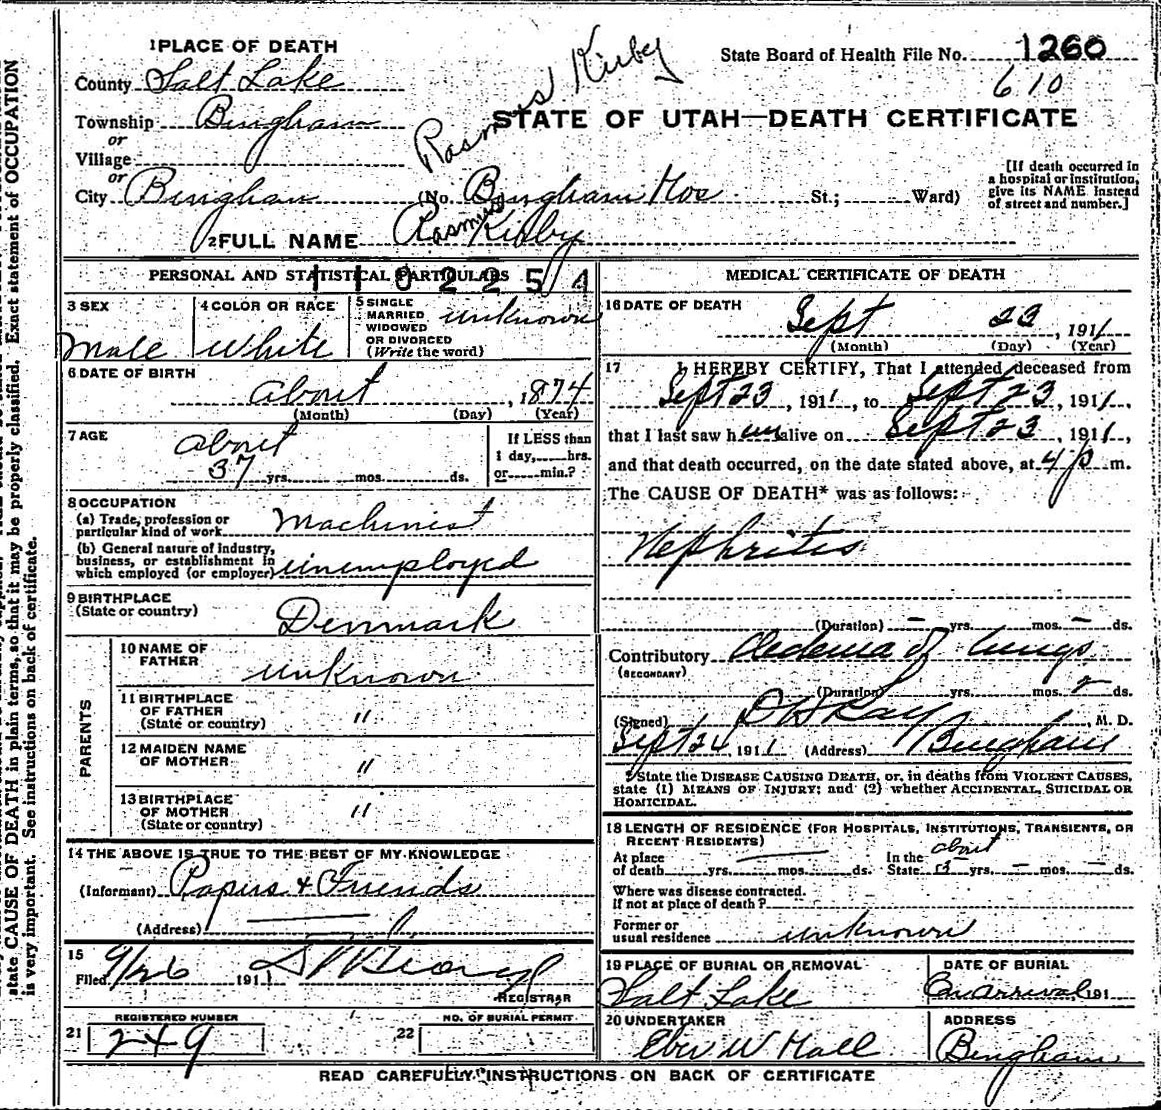 state CAUSE OF DEATH in plain terms, so that it may be properly classified. Exact statement of OCCUPATION
is very important. See instructions on back of certificate.
1 PLACE OF DEATH
County Salt Lake
Township Bingham
or
Village
or
City Bingham (No. Bingham Hos St.; Ward)
Rasmus Kirby
State Board of Health File No. 1260
610
STATE OF UTAH—DEATH CERTIFICATE
[If death occurred in
a hospital or institution,
give its NAME instead
of street and number.]
2 FULL NAME Rasmus Kirby
PERSONAL AND STATISTICAL PARTICULARS
1102254
3 SEX
Male
4 COLOR OR RACE
White
5 SINGLE
MARRIED
WIDOWED
OR DIVORCED
(Write the word)
unknown
6 DATE OF BIRTH
about , 1874
(Month) (Day) (Year)
7 AGE
about
37 yrs. mos. ds.
If LESS than
1 day, hrs.
or min.?
8 OCCUPATION
(a) Trade, profession or
particular kind of work Machinist
(b) General nature of industry,
business, or establishment in
which employed (or employer) unemployed
9 BIRTHPLACE
(State or country) Denmark
PARENTS
10 NAME OF
FATHER unknown
11 BIRTHPLACE
OF FATHER
(State or country) "
12 MAIDEN NAME
OF MOTHER "
13 BIRTHPLACE
OF MOTHER
(State or country) "
14 THE ABOVE IS TRUE TO THE BEST OF MY KNOWLEDGE
(Informant) Papers & Friends
(Address)
15
Filed 9/26 1911
REGISTRAR
REGISTERED NUMBER
21 249
NO. OF BURIAL PERMIT
22
MEDICAL CERTIFICATE OF DEATH
16 DATE OF DEATH
Sept 23, 1911
(Month) (Day) (Year)
17 I HEREBY CERTIFY, That I attended deceased from
Sept 23, 1911, to Sept 23, 1911,
that I last saw him alive on Sept 23, 1911,
and that death occurred, on the date stated above, at 4 p m.
The CAUSE OF DEATH* was as follows:
Nephritis
(Duration) – yrs. mos. – ds.
Contributory Oedema of lungs
(SECONDARY)
(Duration) yrs. mos. 2 ds.
(Signed) D H Ray, M. D.
Sept 24 1911 (Address) Bingham
*State the DISEASE CAUSING DEATH, or, in deaths from VIOLENT CAUSES,
state (1) MEANS OF INJURY; and (2) whether ACCIDENTAL, SUICIDAL OR
HOMICIDAL.
18 LENGTH OF RESIDENCE (FOR HOSPITALS, INSTITUTIONS, TRANSIENTS, OR
RECENT RESIDENTS)
At place
of death yrs. mos. ds.
In the
State about yrs. – mos. – ds.
Where was disease contracted.
if not at place of death?
Former or
usual residence unknown
19 PLACE OF BURIAL OR REMOVAL
Salt Lake
DATE OF BURIAL
On arrival 191
20 UNDERTAKER
Eber W Hall
ADDRESS
Bingham
READ CAREFULLY INSTRUCTIONS ON BACK OF CERTIFICATE